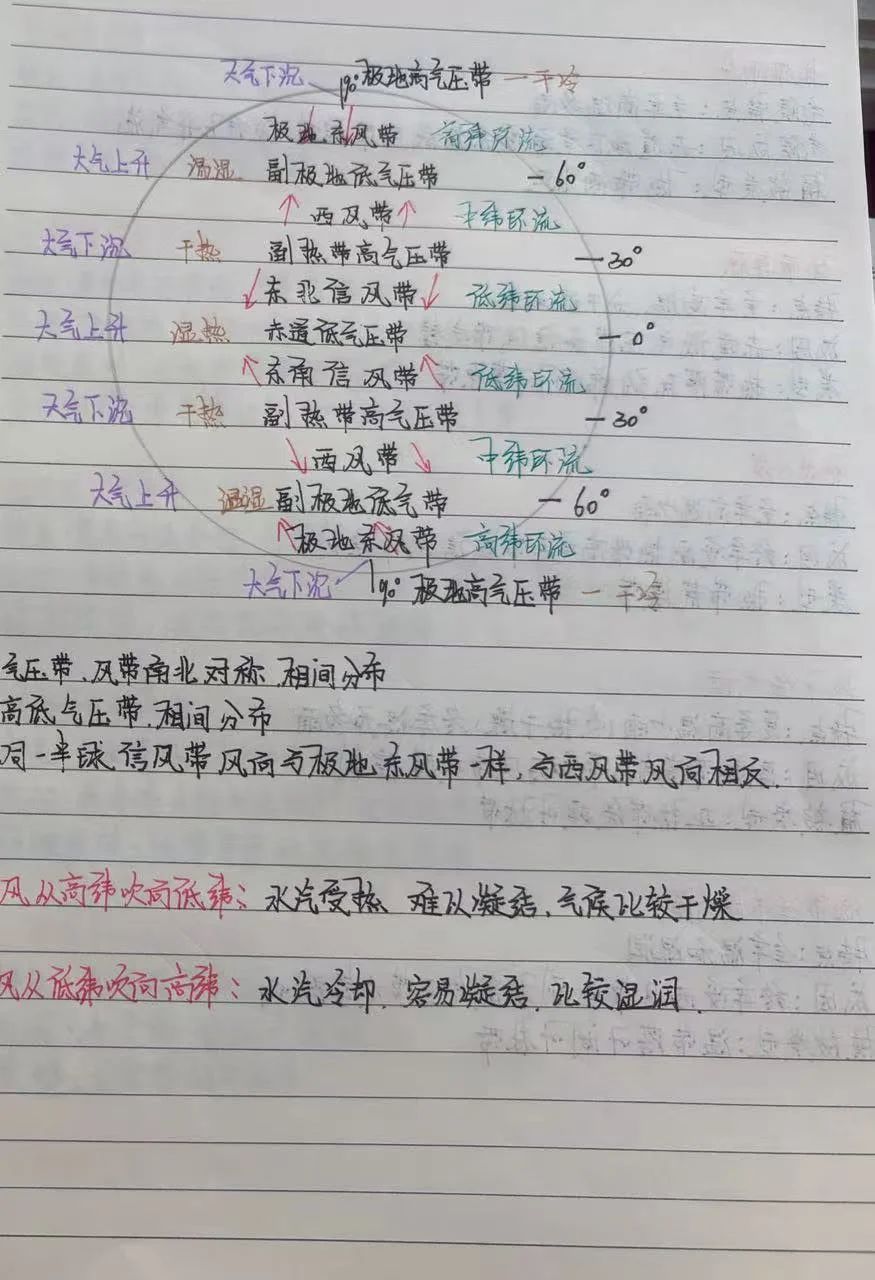 大气下沉 90° 极地高气压带 — 干冷
极地东风带 高纬环流
大气上升 温湿 副极地低气压带 — 60°
西风带 中纬环流
大气下沉 干热 副热带高气压带 — 30°
东北信风带 低纬环流
大气上升 湿热 赤道低气压带 — 0°
东南信风带 低纬环流
大气下沉 干热 副热带高气压带 — 30°
西风带 中纬环流
大气上升 温湿 副极地低气带 — 60°
极地东风带 高纬环流
大气下沉 90° 极地高气压带 — 干冷
气压带、风带南北对称、相间分布
高低气压带、相间分布
同一半球信风带风向与极地东风带一样,与西风带风向相反.
风从高纬吹向低纬:水汽受热 难以凝结、气候比较干燥
风从低纬吹向高纬:水汽冷却、容易凝结、比较湿润.